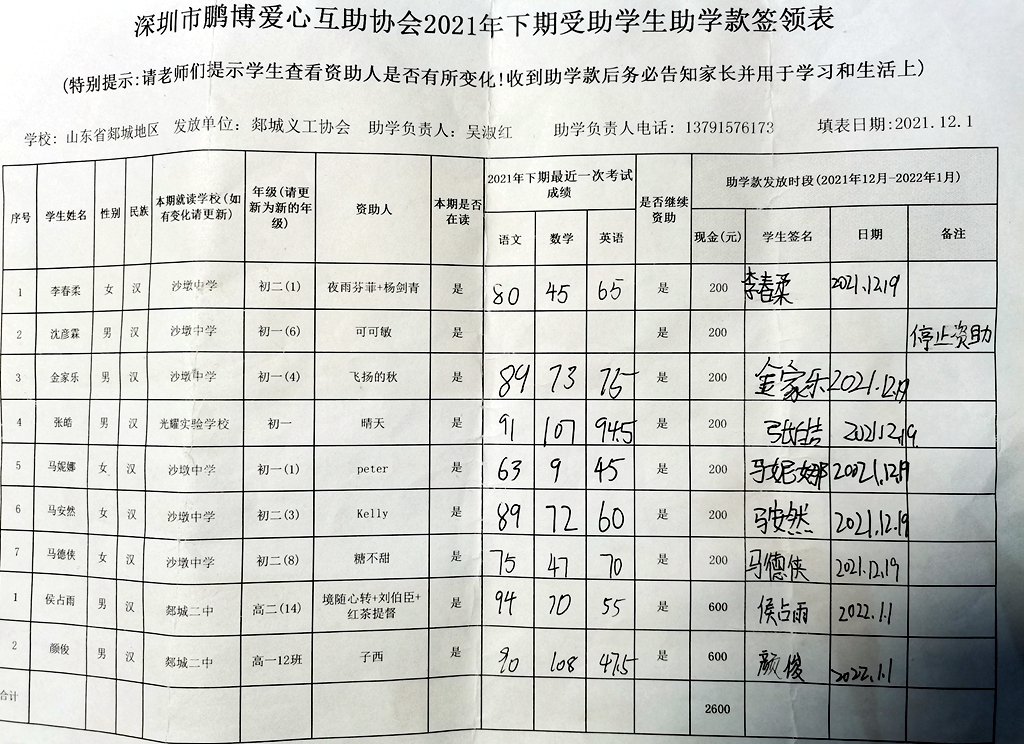 深圳市鹏博爱心互助协会2021年下期受助学生助学款签领表
(特别提示:请老师们提示学生查看资助人是否有所变化!收到助学款后务必告知家长并用于学习和生活上)
学校: 山东省郯城地区 发放单位: 郯城义工协会 助学负责人: 吴淑红 助学负责人电话: 13791576173 填表日期:2021.12.1
序号 学生姓名 性别 民族 本期就读学校(如有变化请更新) 年级(请更新为新的年级) 资助人 本期是否在读 2021年下期最近一次考试成绩 是否继续资助 助学款发放时段(2021年12月-2022年1月)
语文 数学 英语 现金(元) 学生签名 日期 备注
1 李春柔 女 汉 沙墩中学 初二(1) 夜雨芬菲+杨剑青 是 80 45 65 是 200 李春柔 2021.12.19
2 沈彦霖 男 汉 沙墩中学 初一(6) 可可敏 是 是 200 停止资助
3 金家乐 男 汉 沙墩中学 初一(4) 飞扬的秋 是 89 73 75 是 200 金家乐 2021.12.19
4 张皓 男 汉 光耀实验学校 初一 晴天 是 91 107 94.5 是 200 张皓 2021.12.19
5 马妮娜 女 汉 沙墩中学 初一(1) peter 是 63 9 45 是 200 马妮娜 2021.12.19
6 马安然 女 汉 沙墩中学 初二(3) Kelly 是 89 72 60 是 200 马安然 2021.12.19
7 马德侠 女 汉 沙墩中学 初二(8) 糖不甜 是 75 47 70 是 200 马德侠 2021.12.19
1 侯占雨 男 汉 郯城二中 高二(14) 境随心转+刘伯臣+红茶提督 是 94 70 55 是 600 侯占雨 2022.1.1
2 颜俊 男 汉 郯城二中 高一12班 子西 是 90 108 47.5 是 600 颜俊 2022.1.1
合计 2600